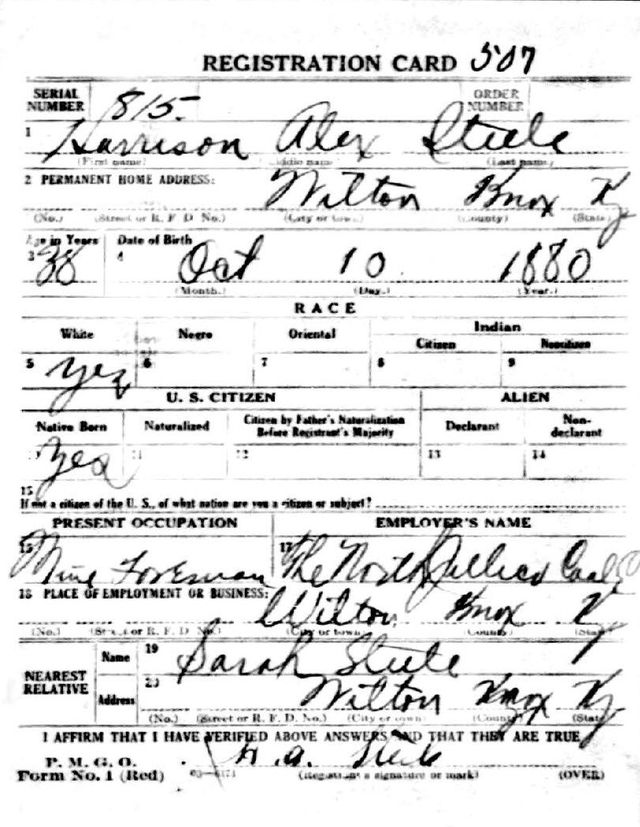 REGISTRATION CARD 507
SERIAL NUMBER 815. ORDER NUMBER
1 Harrison Alex Steele
(First name) (Last name)
2 PERMANENT HOME ADDRESS: Wilton Knox Ky
(No.) (Street or R. F. D. No.) (City or town) (County) (State)
Age in Years Date of Birth
3 38 4 Oct 10 1880
(Month.) (Day.) (Year.)
RACE
White Negro Oriental Indian
Citizen Noncitizen
5 Yes 6 7 8 9
U. S. CITIZEN ALIEN
Native Born Naturalized Citizen by Father's Naturalization Before Registrant's Majority Declarant Non-declarant
Yes 11 12 13 14
15
If not a citizen of the U. S., of what nation are you a citizen or subject?
PRESENT OCCUPATION EMPLOYER'S NAME
Mine Foreman 17 The North Jellico Coal Co
18 PLACE OF EMPLOYMENT OR BUSINESS: Wilton Knox Ky
(No.) (Street or R. F. D. No.) (City or town) (County) (State)
NEAREST RELATIVE Name 19 Sarah Steele
Address 20 Wilton Knox Ky
(No.) (Street or R. F. D. No.) (City or town) (County) (State)
I AFFIRM THAT I HAVE VERIFIED ABOVE ANSWERS AND THAT THEY ARE TRUE
P. M. G. O.
Form No. 1 (Red) H. A. Steele
(Registrant's signature or mark) (OVER)